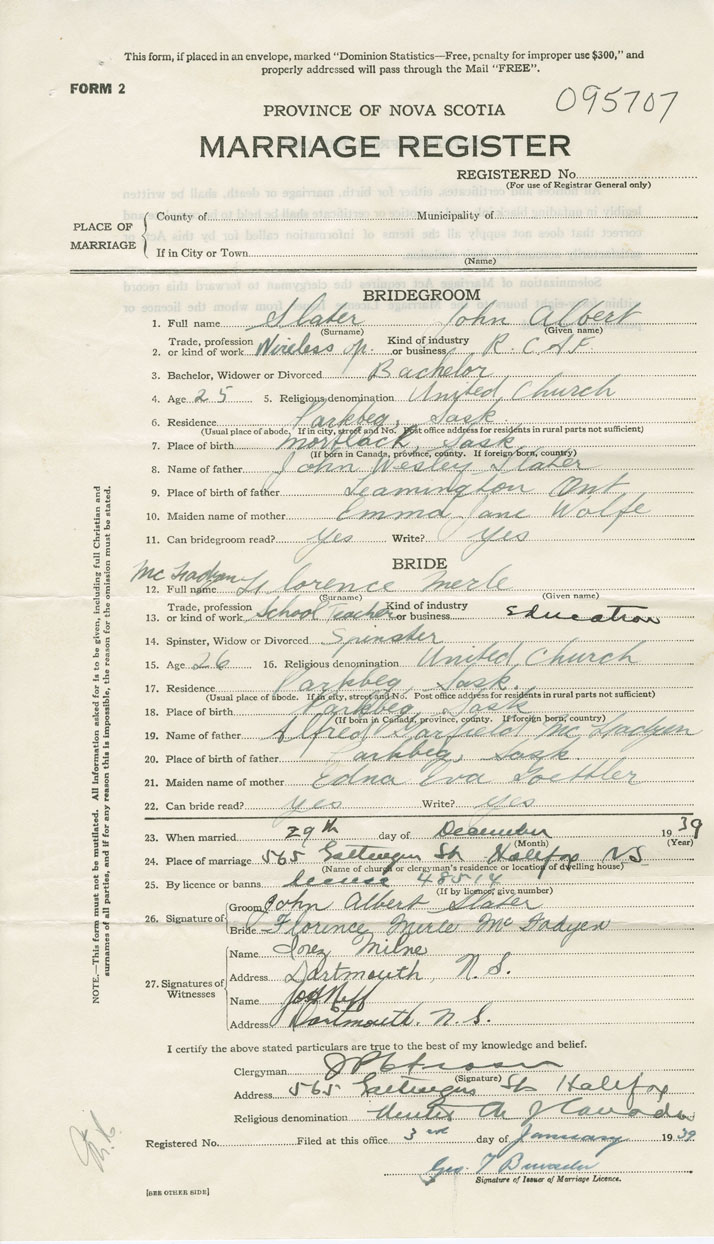 This form, if placed in an envelope, marked "Dominion Statistics—Free, penalty for improper use $300," and
properly addressed will pass through the Mail "FREE".
FORM 2
095707
PROVINCE OF NOVA SCOTIA
MARRIAGE REGISTER
REGISTERED No.
(For use of Registrar General only)
PLACE OF MARRIAGE
County of Municipality of
If in City or Town
(Name)
BRIDEGROOM
1. Full name Slater John Albert
(Surname) (Given name)
2. Trade, profession or kind of work Wireless op. Kind of industry or business R.C.A.F.
3. Bachelor, Widower or Divorced Bachelor
4. Age 25 5. Religious denomination United Church
6. Residence Parkbeg, Sask
(Usual place of abode. If in city, street and No. Post office address for residents in rural parts not sufficient)
7. Place of birth Mortlach, Sask
(If born in Canada, province, county. If foreign born, country)
8. Name of father John Wesley Slater
9. Place of birth of father Leamington Ont
10. Maiden name of mother Emma Jane Wolfe
11. Can bridegroom read? Yes Write? Yes
BRIDE
12. Full name McFadyen Florence Merle
(Surname) (Given name)
13. Trade, profession or kind of work School Teacher Kind of industry or business Education
14. Spinster, Widow or Divorced Spinster
15. Age 26 16. Religious denomination United Church
17. Residence Parkbeg, Sask.
(Usual place of abode. If in city, street and No. Post office address for residents in rural parts not sufficient)
18. Place of birth Parkbeg, Sask
(If born in Canada, province, county. If foreign born, country)
19. Name of father Alfred Garfield McFadyen
20. Place of birth of father Parkbeg, Sask.
21. Maiden name of mother Edna Eva Goettler
22. Can bride read? Yes Write? Yes
23. When married 29th day of December 1939
(Month) (Year)
24. Place of marriage 565 St Halifax NS
(Name of church or clergyman's residence or location of dwelling house)
25. By licence or banns license 48514
(If by licence, give number)
26. Signature of
Groom John Albert Slater
Bride Florence Merle McFadyen
27. Signatures of Witnesses
Name Inez Milne
Address Dartmouth, N.S.
Name
Address Dartmouth. N.S.
I certify the above stated particulars are true to the best of my knowledge and belief.
Clergyman
(Signature)
Address 565 St Halifax
Religious denomination United Ch of Canada
Registered No. Filed at this office 3rd day of January 1939
Geo. T
Signature of Issuer of Marriage Licence.
[SEE OTHER SIDE]
NOTE.—This form must not be mutilated. All information asked for is to be given, including full Christian and
surnames of all parties, and if for any reason this is impossible, the reason for the omission must be stated.